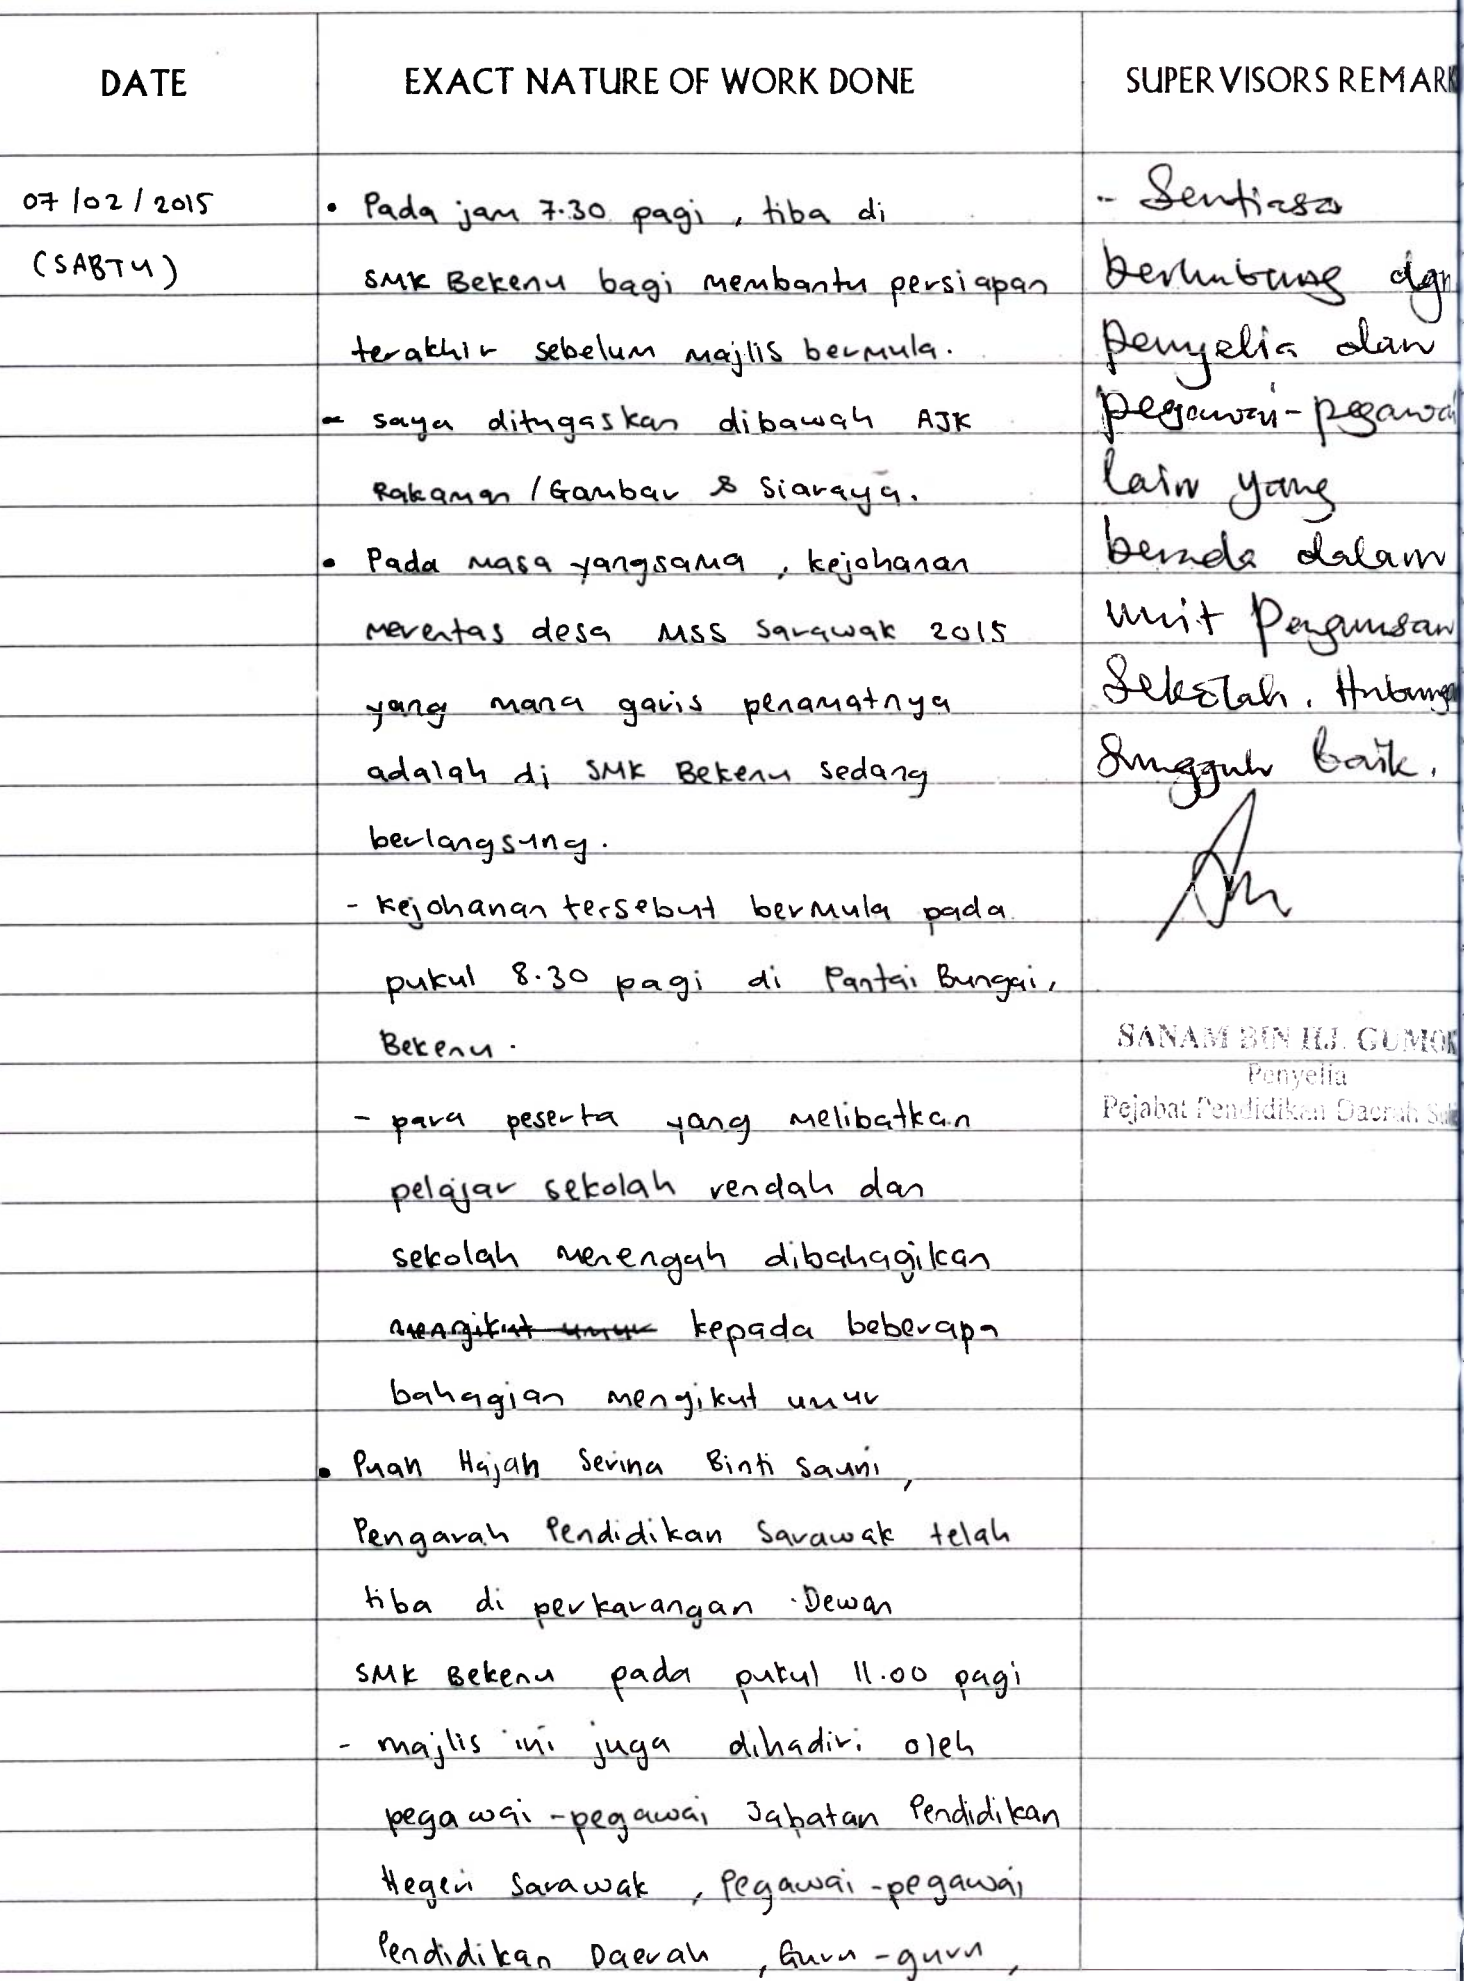 DATE
EXACT NATURE OF WORK DONE
SUPERVISORS REMARK
07/02/2015
(SABTU)
• Pada jam 7.30 pagi, tiba di
SMK Bekenu bagi membantu persiapan
terakhir sebelum majlis bermula.
- saya ditugaskan dibawah AJK
Rakaman / Gambar & Siaraya.
• Pada masa yangsama, kejohanan
merentas desa MSS Sarawak 2015
yang mana garis penamatnya
adalah di SMK Bekenu sedang
berlangsung.
- kejohanan tersebut bermula pada
pukul 8.30 pagi di Pantai Bungai,
Bekenu.
- para peserta yang melibatkan
pelajar sekolah rendah dan
sekolah menengah dibahagikan
mengikut umur kepada beberapa
bahagian mengikut umur
• Puan Hajah Serina Binti Sauni,
Pengarah Pendidikan Sarawak telah
tiba di perkarangan Dewan
SMK Bekenu pada pukul 11.00 pagi
- majlis ini juga dihadiri oleh
pegawai-pegawai Jabatan Pendidikan
Negeri Sarawak, Pegawai-pegawai
Pendidikan Daerah, Guru-guru,
- Sentiasa
berhubung dgn
penyelia dan
pegawai-pegawai
lain yang
berada dalam
unit Pengurusan
Sekolah. Hubungan
Sungguh baik.
SANAM BIN HJ. GUMOK
Penyelia
Pejabat Pendidikan Daerah